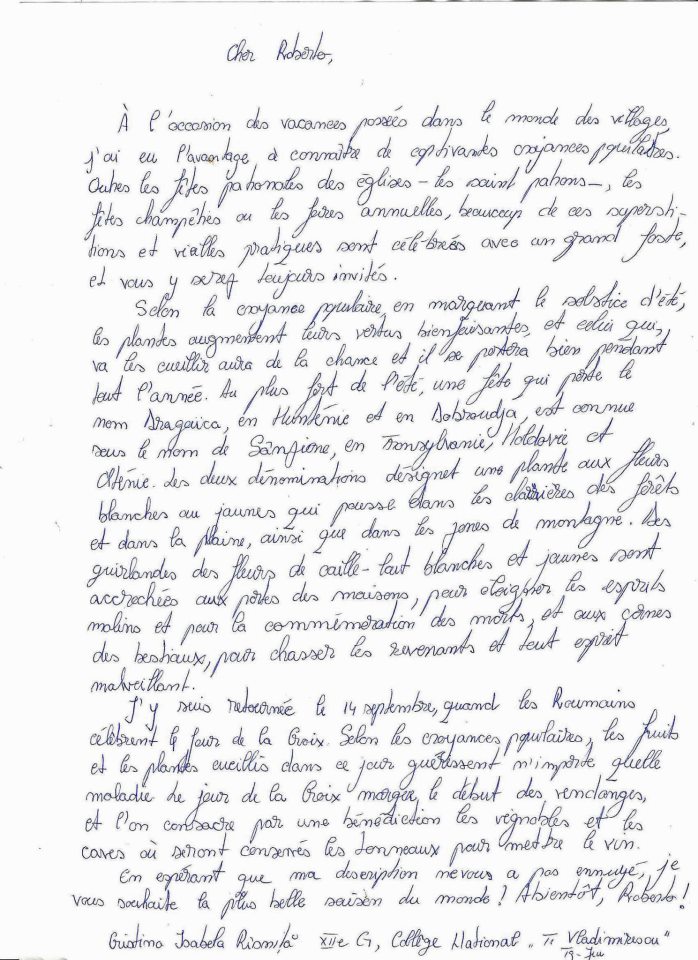 Cher Roberto,
À l'occasion des vacances passées dans le monde des villages,
j'ai eu l'avantage à connaître de captivantes croyances populaires.
Outres les fêtes patronales des églises – les saint patrons –, les
fêtes champêtres ou les foires annuelles, beaucoup de ces supersti-
tions et vieilles pratiques sont célébrées avec un grand faste,
et vous y serez toujours invités.
Selon la croyance populaire, en marquant le solstice d'été,
les plantes augmentent leurs vertus bienfaisantes, et celui qui
va les cueillir aura de la chance et il se portera bien pendant
tout l'année. Au plus fort de l'été, une fête qui porte le
nom Dragaica, en Munténie et en Dobroudja, est connue
sous le nom de Sânziene, en Transylvanie, Moldavie et
Olténie. Les deux dénominations désignet une plante aux fleurs
blanches ou jaunes qui pousse dans les clairières des forêts
et dans la plaine, ainsi que dans les zones de montagne. Des
guirlandes des fleurs de caille-lait blanches et jaunes sont
accrochées aux portes des maisons, pour éloigner les esprits
malins et pour la commémoration des morts, et aux cornes
des bestiaux, pour chasser les revenants et tout esprit
malveillant.
J'y suis retournée le 14 septembre, quand les Roumains
célèbrent le Jour de la Croix. Selon les croyances populaires, les fruits
et les plantes cueillis dans ce jour guérissent n'importe quelle
maladie. Le jour de la Croix marque le début des vendanges,
et l'on consacre par une bénédiction les vignobles et les
caves où seront conservés les tonneaux pour mettre le vin.
En espérant que ma description ne vous a pas ennuyé, je
vous souhaite la plus belle saison du monde! Abientôt, Roberto!
Cristina Isabela XIIe G, Collège National „T. Vladimirescu"
Tg-Jiu